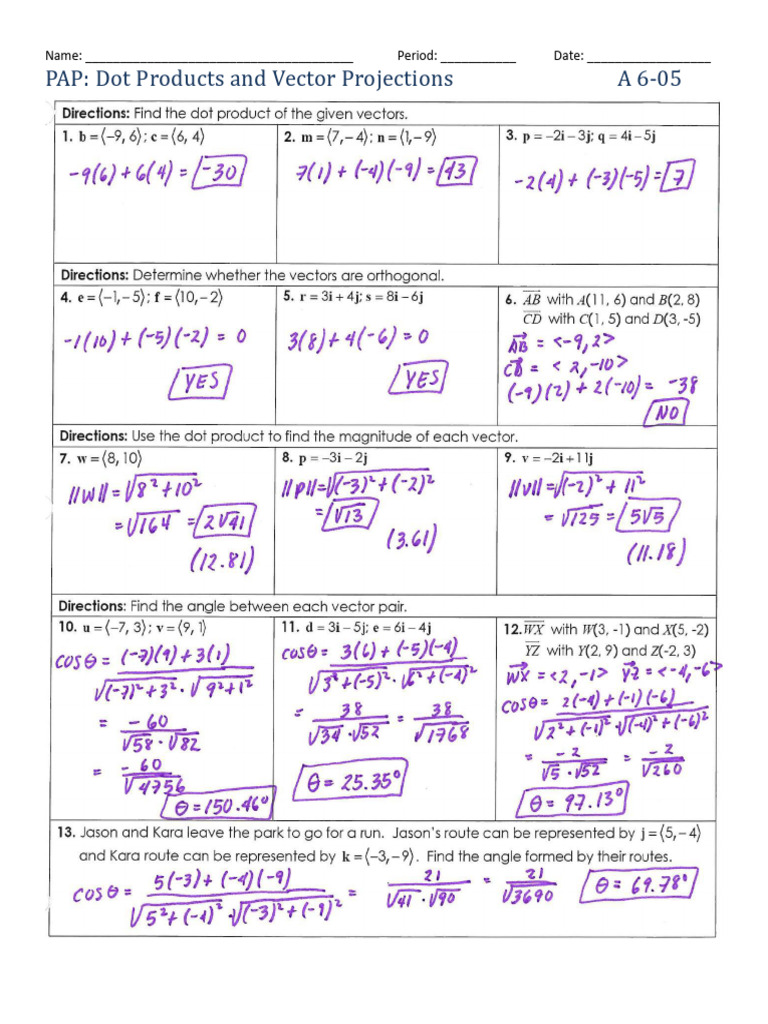 Name: ______________________________________ Period: ___________ Date: __________________
PAP: Dot Products and Vector Projections A 6-05
Directions: Find the dot product of the given vectors.
1. b = ⟨−9, 6⟩; c = ⟨6, 4⟩
-9(6) + 6(4) = -30
2. m = ⟨7, −4⟩; n = ⟨1, −9⟩
7(1) + (-4)(-9) = 43
3. p = −2i − 3j; q = 4i − 5j
-2(4) + (-3)(-5) = 7
Directions: Determine whether the vectors are orthogonal.
4. e = ⟨−1, −5⟩; f = ⟨10, −2⟩
-1(10) + (-5)(-2) = 0
YES
5. r = 3i + 4j; s = 8i − 6j
3(8) + 4(-6) = 0
YES
6. AB with A(11, 6) and B(2, 8)
CD with C(1, 5) and D(3, -5)
AB = <-9, 2>
CD = <2, -10>
(-9)(2) + 2(-10) = -38
NO
Directions: Use the dot product to find the magnitude of each vector.
7. w = ⟨8, 10⟩
||w|| = √8² + 10²
= √164 = 2√41
(12.81)
8. p = −3i − 2j
||p|| = √(-3)² + (-2)²
= √13
(3.61)
9. v = −2i + 11j
||v|| = √(-2)² + 11²
= √125 = 5√5
(11.18)
Directions: Find the angle between each vector pair.
10. u = ⟨−7, 3⟩; v = ⟨9, 1⟩
cos θ = (-7)(9) + 3(1)
√(-7)² + 3² · √9² + 1²
= -60
√58 · √82
= -60
√4756
θ = 150.46°
11. d = 3i − 5j; e = 6i − 4j
cos θ = 3(6) + (-5)(-4)
√3² + (-5)² · √6² + (-4)²
= 38 = 38
√34 · √52 √1768
θ = 25.35°
12. WX with W(3, -1) and X(5, -2)
YZ with Y(2, 9) and Z(-2, 3)
WX = <2, -1> YZ = <-4, -6>
cos θ = 2(-4) + (-1)(-6)
√2² + (-1)² · √(-4)² + (-6)²
= -2 = -2
√5 · √52 √260
θ = 97.13°
13. Jason and Kara leave the park to go for a run. Jason's route can be represented by j = ⟨5, −4⟩
and Kara route can be represented by k = ⟨−3, −9⟩. Find the angle formed by their routes.
cos θ = 5(-3) + (-4)(-9) = 21 = 21
√5² + (-4)² · √(-3)² + (-9)² √41 · √90 √3690
θ = 69.78°